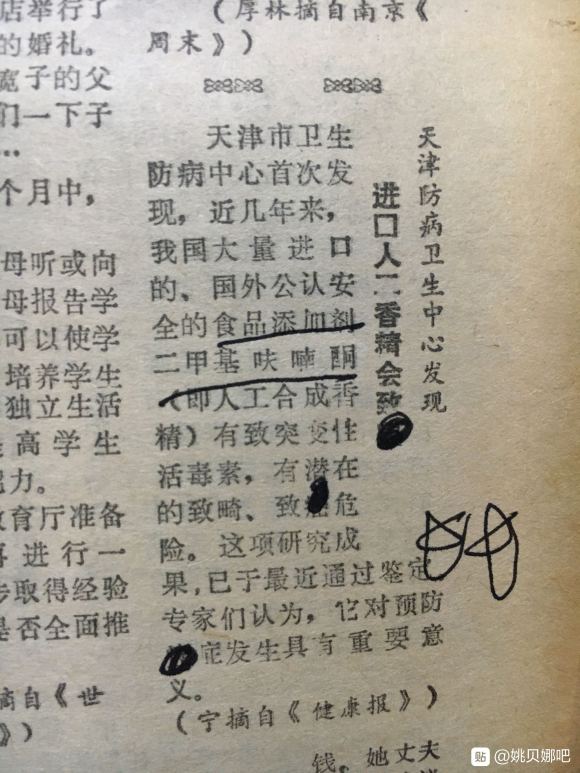 店举行了
的婚礼。
宽子的父
们一下子
…
个月中，
母听或向
母报告学
可以使学
培养学生
独立生活
高学生
力。
教育厅准备
再进行一
步取得经验
是否全面推
摘自《世
》）
（厚林摘自南京《
周末》）
天津防病卫生中心发现
进口人工香精会致
天津市卫生
防病中心首次发
现，近几年来，
我国大量进口
的、国外公认安
全的食品添加剂
二甲基呋喃酮
（即人工合成香
精）有致突变性
活毒素，有潜在
的致畸、致癌危
险。这项研究成
果，已于最近通过鉴定
专家们认为，它对预防
症发生具有重要意
义。
（宁摘自《健康报》）
钱。她丈夫
贴 @姚贝娜吧